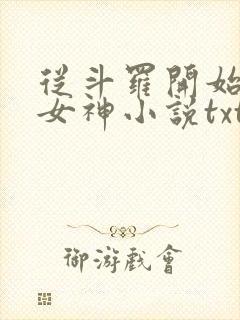 從斗羅開始
女神小說txt
御游戲會